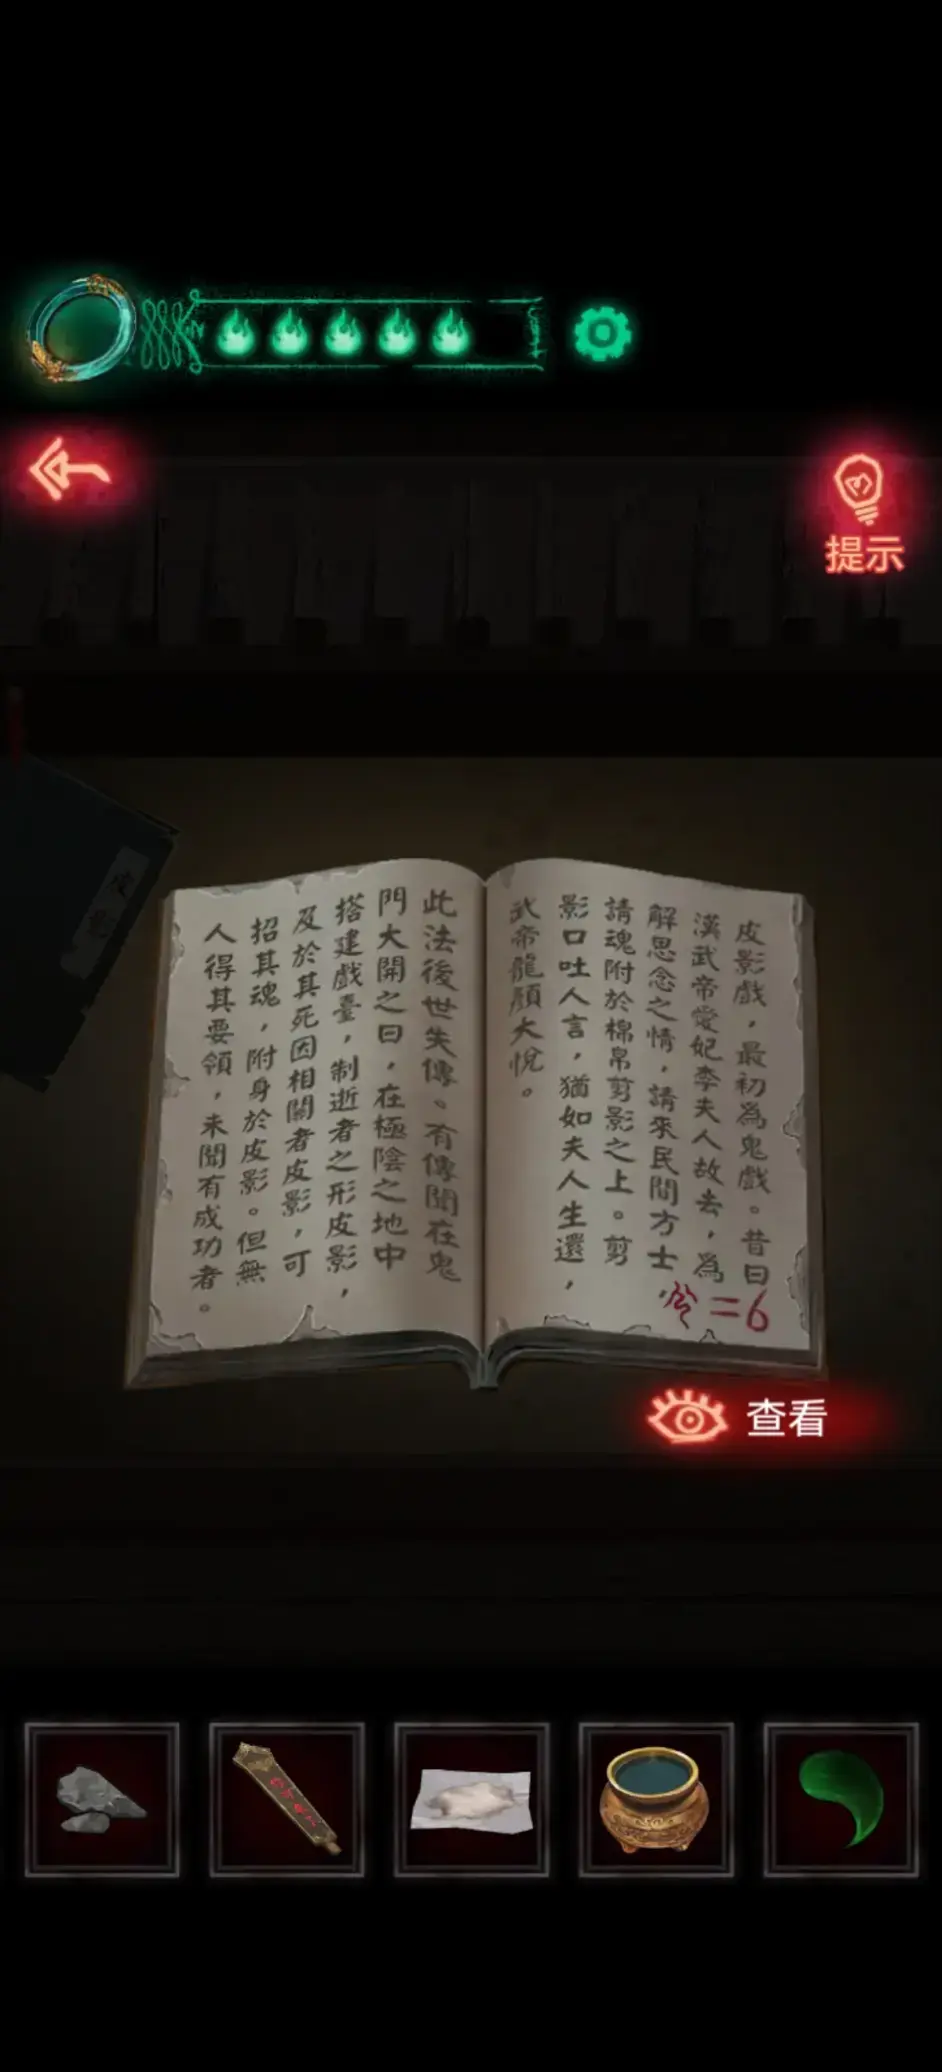 提示
皮影戲，最初爲鬼戲。昔日
漢武帝愛妃李夫人故去，爲
解思念之情，請來民間方士，
請魂附於棉帛剪影之上。剪
影口吐人言，猶如夫人生還，
武帝龍顏大悅。
=6
此法後世失傳。有傳聞在鬼
門大開之日，在極陰之地中
搭建戲臺，制逝者之形皮影，
及於其死因相關者皮影，可
招其魂，附身於皮影。但無
人得其要領，未聞有成功者。
皮影
查看